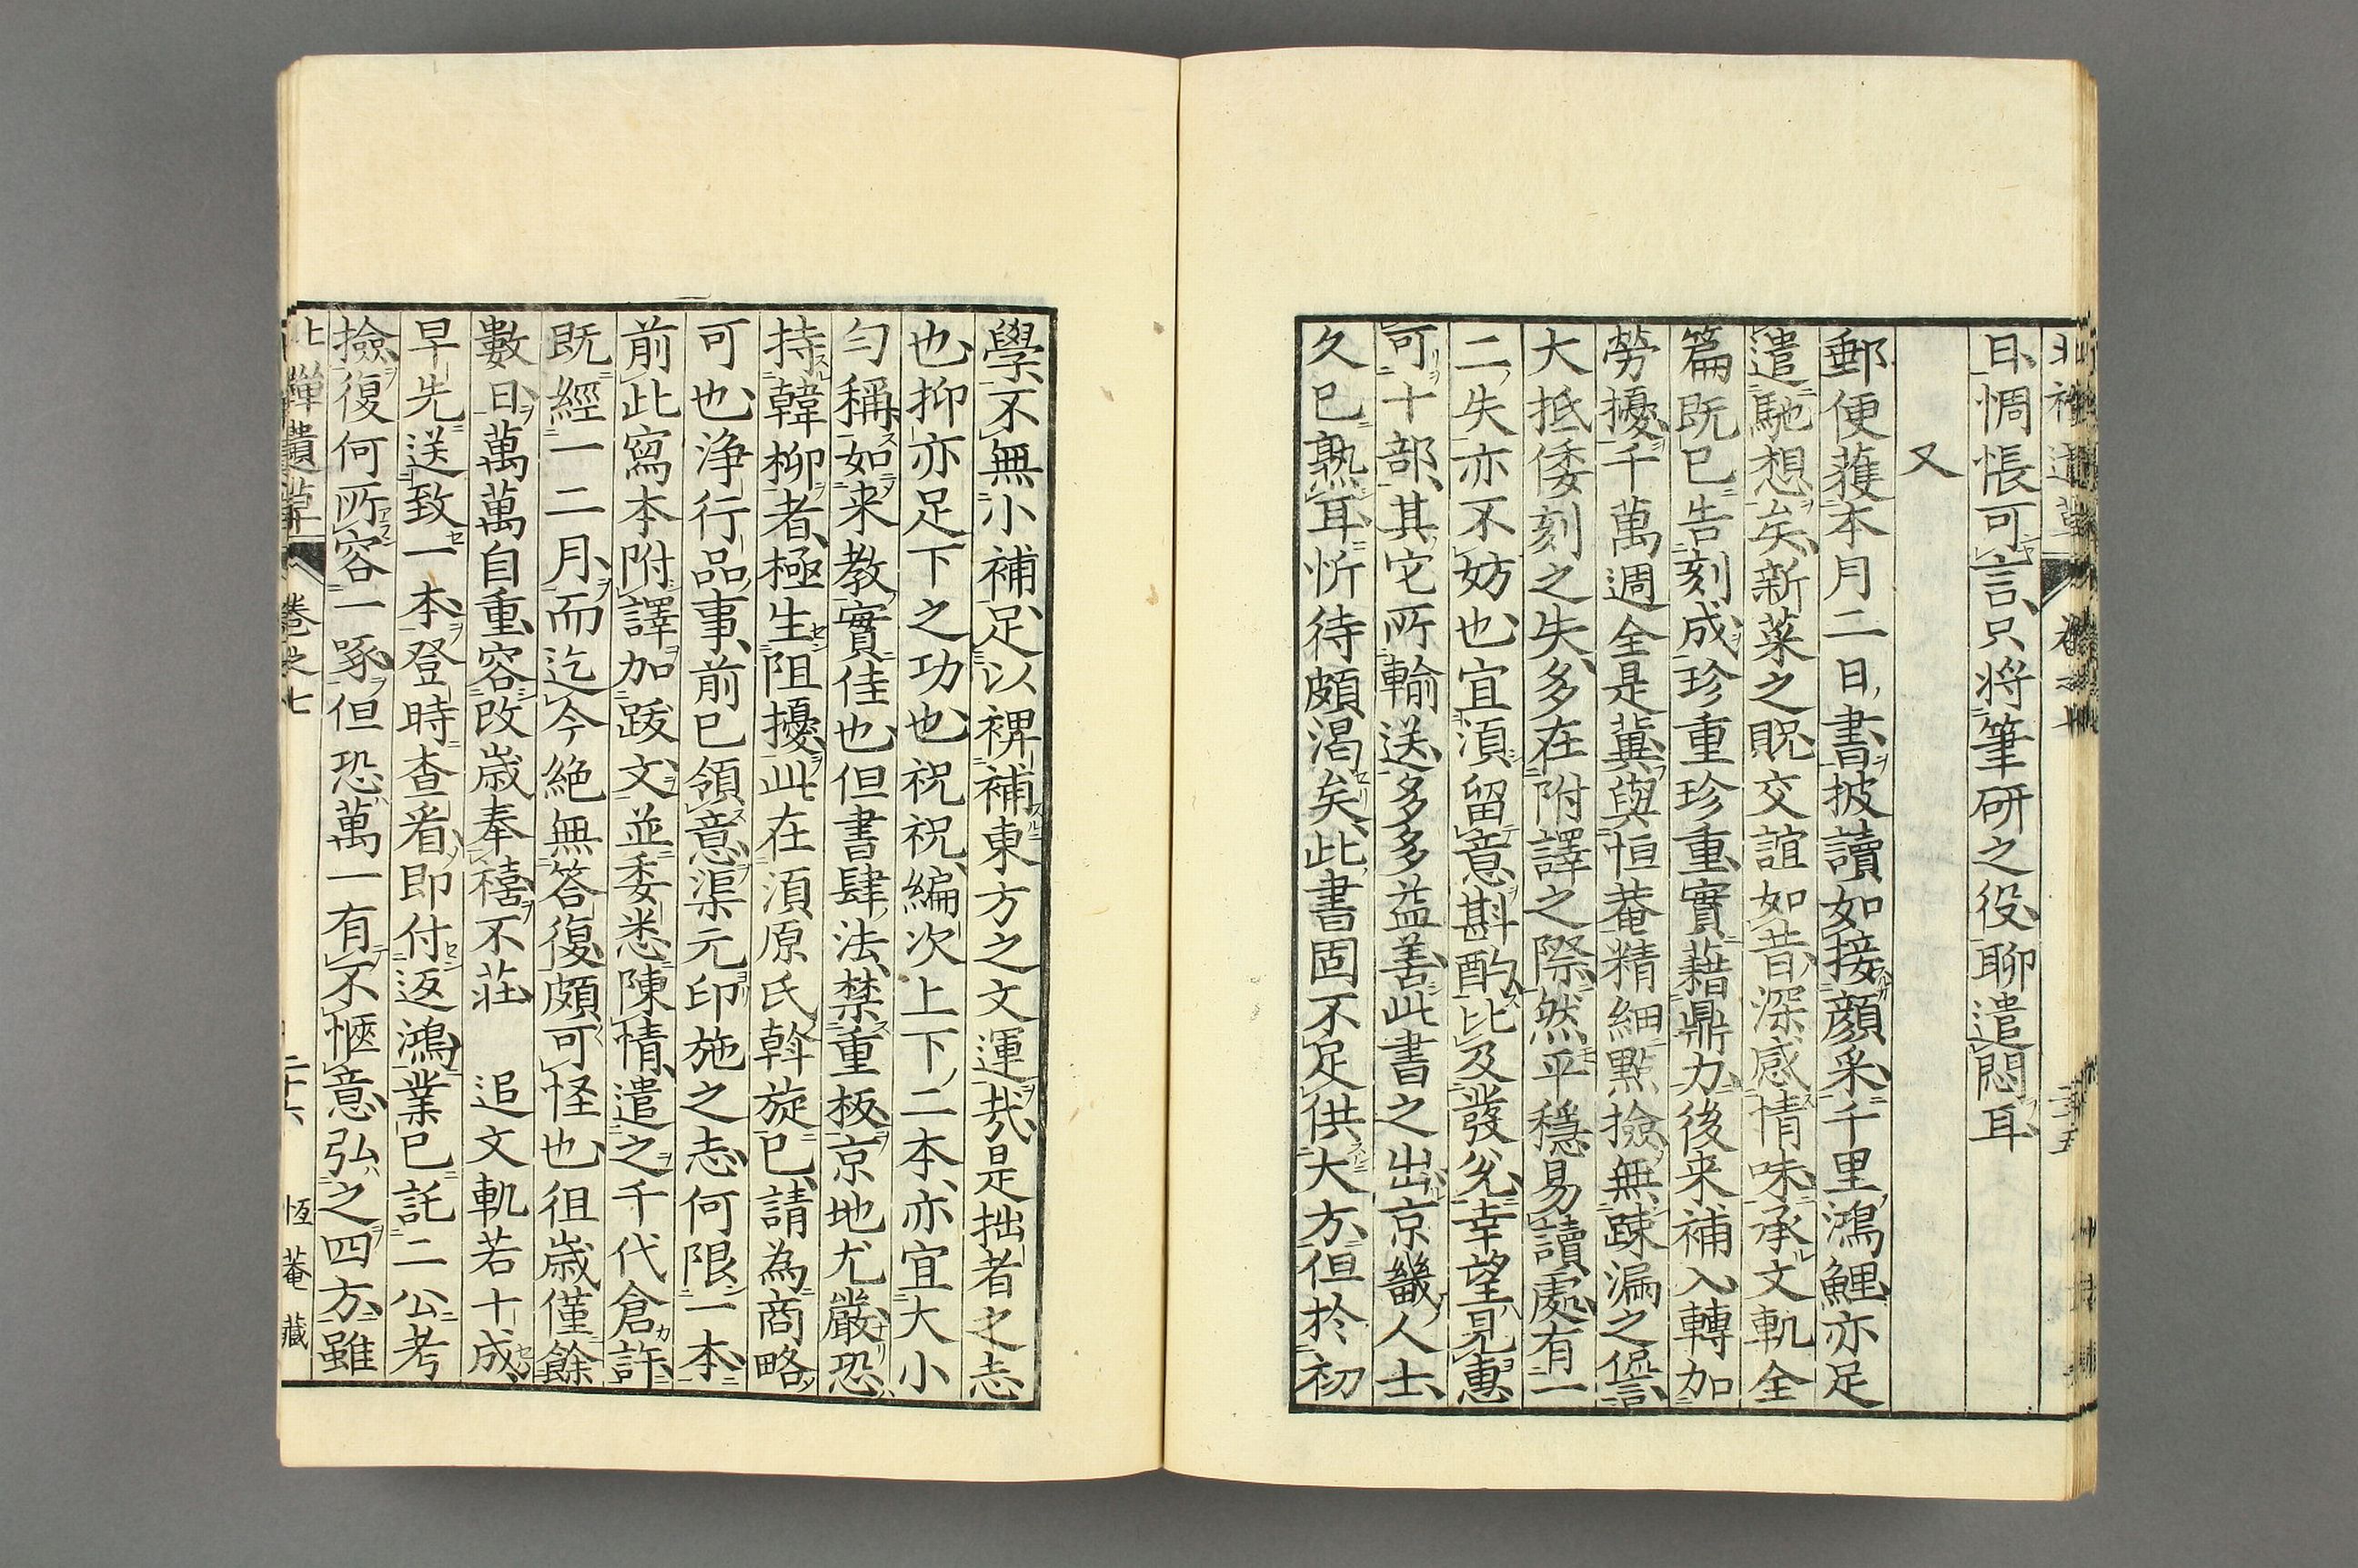 日惆悵可言只将筆研之役聊遣悶耳
又
郵便蒦本月二日書披讀如接顔采千里鴻鯉亦足
遣馳想矣新菜之貺交誼如昔深感情味承文軌全
篇既已告刻成珍重珍重實藉鼎力後来補入轉加
勞擾千萬週全是冀與恒菴精細點撿無踈漏之㒽
大抵倭刻之失多在附譯之際然平穩易讀處有一
二失亦不妨也宜湏留意斟酌比及發兌幸望見惠
可十部其它所輸送多多益善此書之出京畿人士
久已熟耳忻待頗渇矣此書固不足供大方但於初
學不無小補足以裨補東方之文運哉是拙者之志
也抑亦足下之功也祝祝編次上下二本亦宜大小
勻稱如来教實佳也但書肆法禁重板京地尤嚴恐
持韓柳者極生阻擾此在湏原氏斡旋已請為商略
可也浄行品事前已領意渠元印施之志何限一本
前此寫本附譯加跋文並委悉陳情遣之千代倉許
既經一二月而迄今絶無答復頗可怪也徂歳僅餘
數日萬萬自重容改歳奉禧不莊　追文軌若十成
早先送致一本登時查看即付返鴻業已託二公考
撿復何所容一啄但恐萬一有不愜意弘之四方雖
北禪遺草
卷之七
二十六
恆菴藏